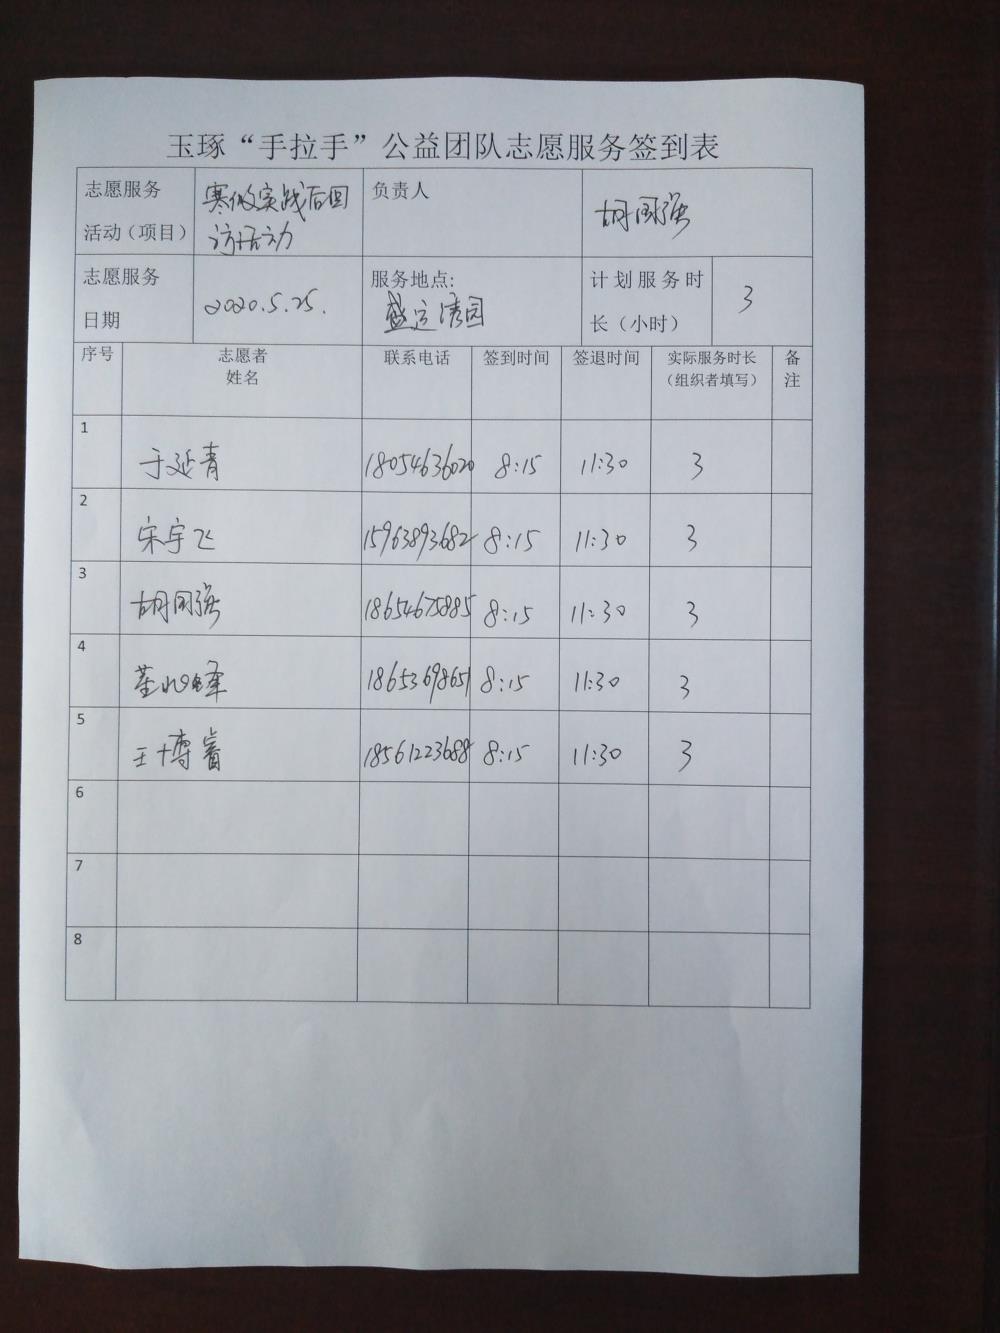 玉琢“手拉手”公益团队志愿服务签到表
志愿服务 寒假实战后回 负责人 胡国强
活动（项目） 访活动
志愿服务 服务地点: 计划服务时
日期 2020.5.25. 盛运清园 长（小时） 3
序号 志愿者 联系电话 签到时间 签退时间 实际服务时长 备
姓名 （组织者填写） 注
1 于延青 18054636020 8:15 11:30 3
2 宋宇飞 15963893682 8:15 11:30 3
3 胡国强 18654675885 8:15 11:30 3
4 18653698651 8:15 11:30 3
5 王博睿 18561223688 8:15 11:30 3
6
7
8